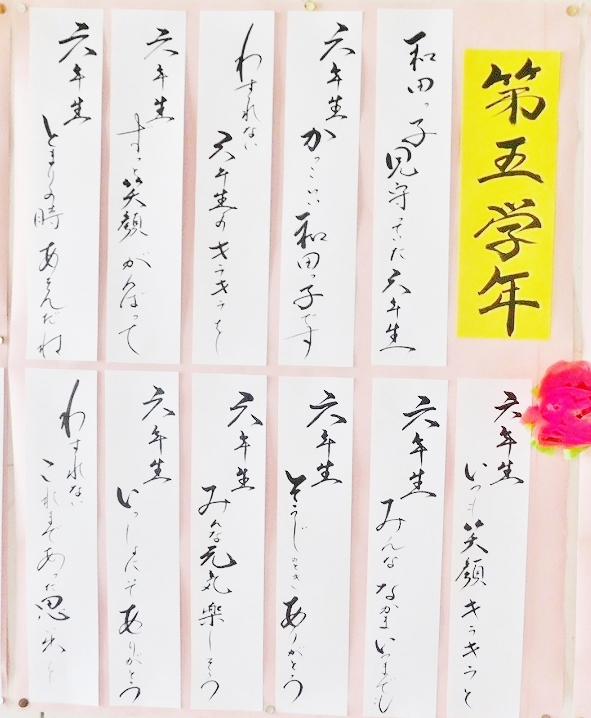 第五学年
和田っ子見守ってきた六年生
六年生かっこいい和田っ子です
わすれない六年生のキラキラを
六年生ずっと笑顔がんばって
六年生とまりの時あそんだね
六年生いつも笑顔キラキラと
六年生みんななかまいつまでも
六年生そうじのときありがとう
六年生みんな元気楽しそう
六年生いっしょにそうじありがとう
わすれないこれまであった思い出を